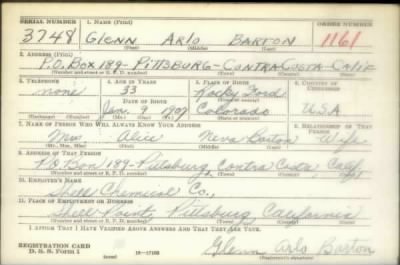 SERIAL NUMBER 1. NAME (Print) ORDER NUMBER
3748 GLENN ARLO BARTON 1161
(First) (Middle) (Last)
2. ADDRESS (Print)
P.O. BOX 189 - PITTSBURG - CONTRA COSTA - CALIF
(Number and street or R. F. D. number) (Town) (County) (State)
3. TELEPHONE 4. AGE IN YEARS 5. PLACE OF BIRTH 6. COUNTRY OF CITIZENSHIP
none 33 Rocky Ford
DATE OF BIRTH (Town or county)
Jan 9 1907 Colorado U S A
(Exchange) (No.) (Mo.) (Day) (Yr.) (State or country)
7. NAME OF PERSON WHO WILL ALWAYS KNOW YOUR ADDRESS 8. RELATIONSHIP OF THAT PERSON
Mrs Alice Neva Barton Wife
(Mr., Mrs., Miss) (First) (Middle) (Last)
9. ADDRESS OF THAT PERSON
P.O. Box 189 - Pittsburg, Contra Costa, Calif.
(Number and street or R. F. D. number) (Town) (County) (State)
10. EMPLOYER'S NAME
Shell Chemical Co.,
11. PLACE OF EMPLOYMENT OR BUSINESS
Shell Point, Pittsburg, California
(Number and street or R. F. D. number) (Town) (County) (State)
I AFFIRM THAT I HAVE VERIFIED ABOVE ANSWERS AND THAT THEY ARE TRUE.
REGISTRATION CARD
D. S. S. Form 1 (over) Glenn Arlo Barton